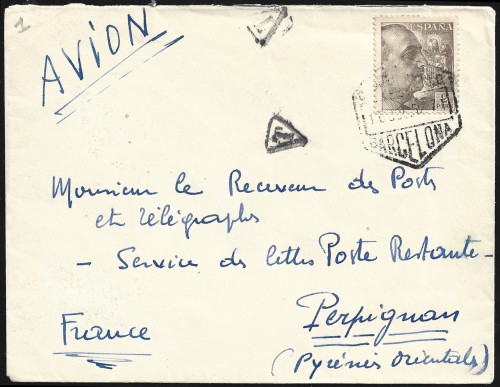 1
AVION
T
ESPAÑA
BARCELONA
T
Monsieur le Receveur des Posts
et télégraphs
- Service des lettres Poste Restante -
Perpignan
France
(Pyrénés Orientals)